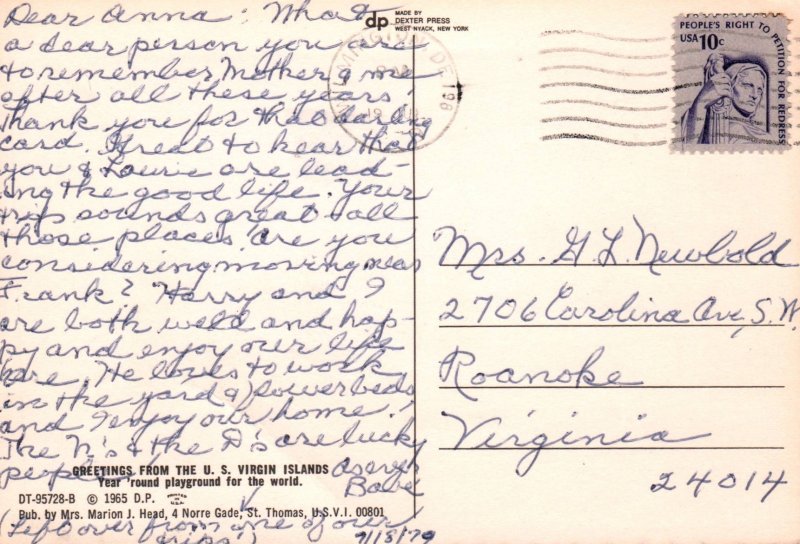 Dear Anna: What
a dear person you are
to remember Mother & me
after all these years.
Thank you for that darling
card. Great to hear that
you & Laurie are lead-
ing the good life. Your
trip sounds great - all
those places! are you
considering moving near
Frank? Harry and I
are both well and hap-
py and enjoy our life
here. He loves to work
in the yard & flowerbeds
and I enjoy our home.
The N's & the D's are lucky
people
as ever,
Babe
(Left over from one of our
trips!)
9/18/79
dp
MADE BY
DEXTER PRESS
WEST NYACK, NEW YORK
PEOPLE'S RIGHT TO PETITION FOR REDRESS
USA 10c
198
Mrs. G L Newbold
2706 Carolina Ave, S.W.
Roanoke
Virginia
24014
GREETINGS FROM THE U. S. VIRGIN ISLANDS
Year 'round playground for the world.
DT-95728-B © 1965 D.P.
Pub. by Mrs. Marion J. Head, 4 Norre Gade, St. Thomas, U.S.V.I. 00801